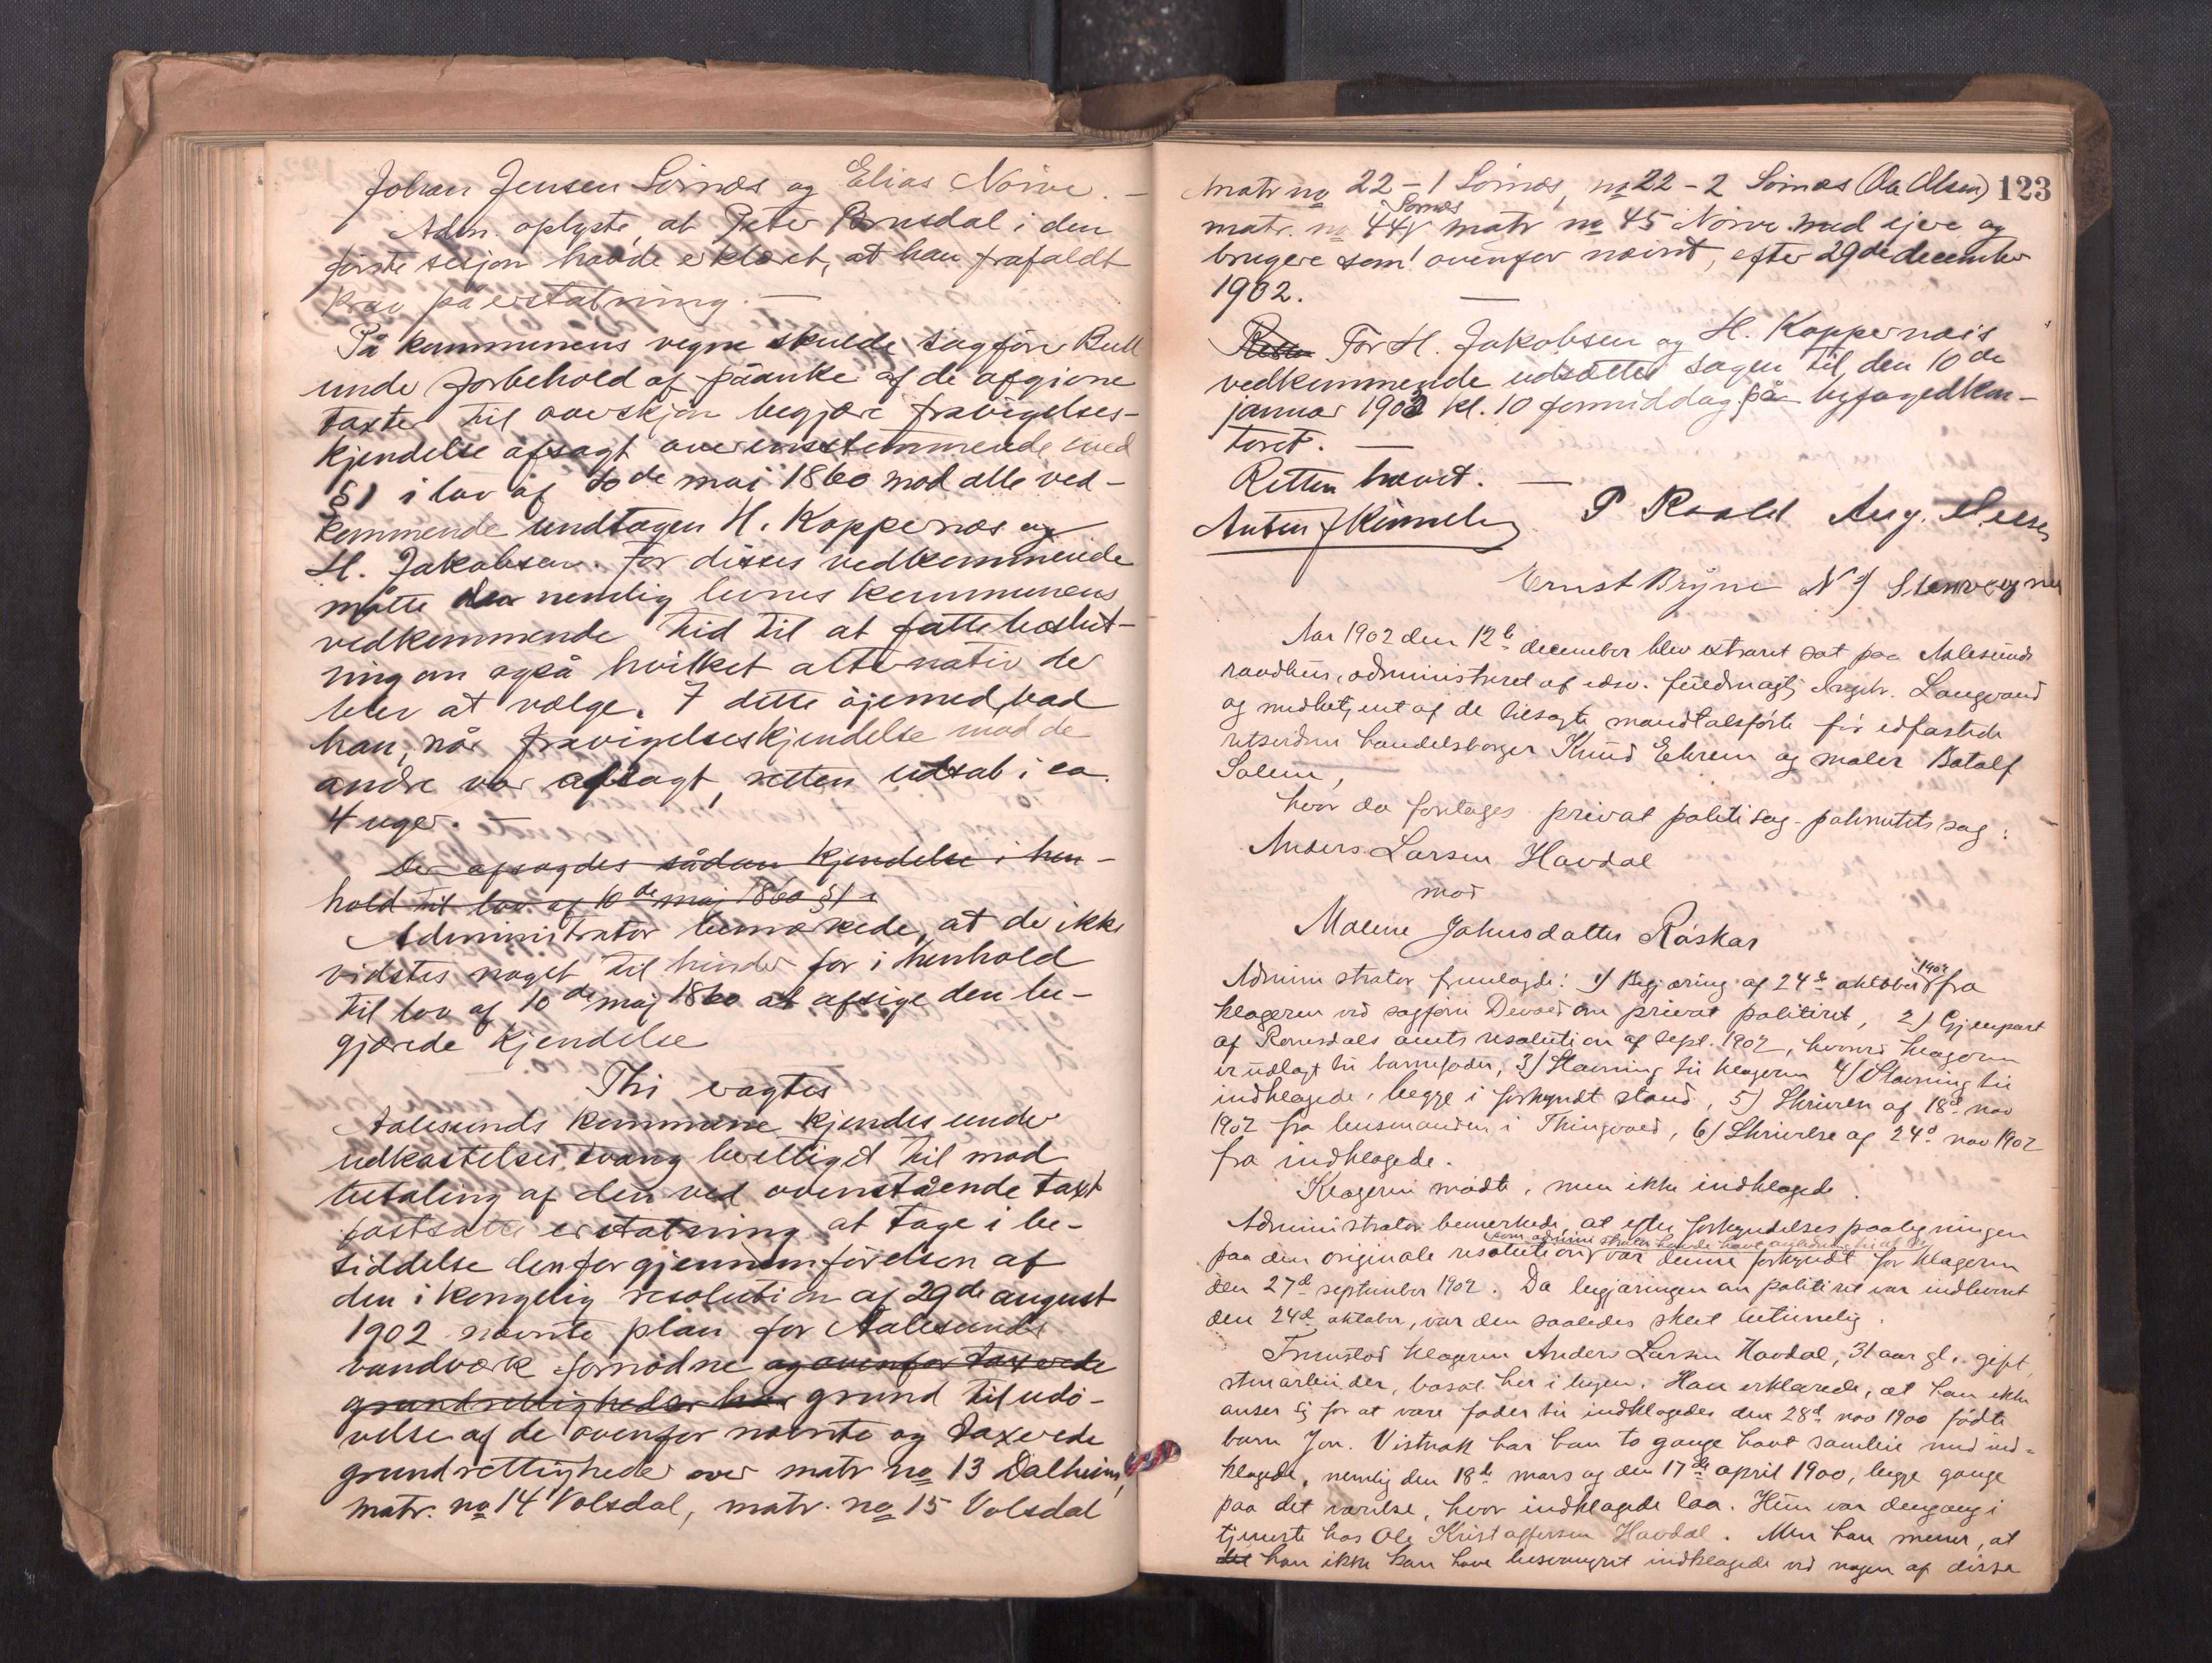 Johan Jensen Sørnæs og Elias Nørve. —
Adm. oplyste, at Peter Brusdal i den
første sesjon havde erklæret, at han frafaldt
krav på erstatning. —
På kommunens vegne skulde sagfører Bull
under forbehold af påanke af de afgivne
taxter til overskjøn begjære fravigelses-
kjendelse afsagt overensstemmende med
§ 1 i lov af 10de mai 1860 mod alle ved-
kommende undtagen H. Koppernæs og
H. Jakobsen. For disses vedkommende
måtte den nemlig levnes kommunens
vedkommende tid til at fatte beslut-
ning om også hvilket alternativ der
blev at vælge. I dette øjemed bad
han, når fravigelseskjendelse mod de
andre var afsagt, retten udsat i ca.
4 uger. —
Der afsagdes sådan kjendelse i hen-
hold til lov af 10de maj 1860 § 1.
Administrator bemærkede, at der ikke
vidstes noget til hinder for i henhold
til lov af 10de maj 1860 at afsige den be-
gjærede kjendelse
Thi eragtes
Aalesunds kommune kjendes under
udkastelses tvang berettiget til mod
betaling af den ved ovenstående taxt
fastsatte erstatning at tage i be-
siddelse den for gjennemførelsen af
den i kongelig resolution af 29de august
1902 nævnte plan for Aalesunds
vandværk fornødne og ovenfor taxerede
grundrettigheder grund til udø-
velse af de ovenfor nævnte og taxerede
grundrettigheder over matr no 13 Dalheim,
matr. no 14 Volsdal, matr. no 15 Volsdal
123
matr no 22 - 1 Sørnæs, no 22 - 2 Sørnæs (Aa Olsen)
Sørnæs
matr. no 44, matr no 45 Nørve med ejere og
brugere som ovenfor nævnt, efter 29de december
1902. —
For H. Jakobsen og H. Koppernæs
vedkommende udsættes sagen til den 10de
januar 1903 kl. 10 formiddag på byfogedkon-
toret. —
Retten hævet. —
P Roald Aug.
Ernst Brÿne
Aar 1902 den 12te december blev extraret sat paa Aalesunds
raadhus, administreret af edsv. fuldmægtig Langvand
og medbetjent af de tilsagte mandtalsførte før edfæstede
retsvidner handelsborger Knud Ekrem og maler Botolf
Solem,
hvor da foretages privat politisag - paternitetssag:
Anders Larsen Havdal
mod
Malene Johnsdatter Røskar
1902
Administrator fremlagde: 1) Begjæring af 24de oktober fra
klageren ved sagfører Devold om privat politiret, 2) Gjenpart
af Romsdals amts resolution af sept. 1902, hvorved klageren
er udlagt til barnefader, 3) Stævning til klageren 4) Stævning til
indklagede, begge i forkyndt stand, 5) Skrivelse af 18de nov
1902 fra lensmanden i Thingvold, 6) Skrivelse af 24de nov 1902
fra indklagede.
Klageren mødte, men ikke indklagede.
Administrator bemerkede, at efter forkyndelsespaategningen
som administrator havde havt anledning til at se
paa den originale resolution var denne forkyndt for klageren
den 27de september 1902. Da begjæringen om politiret var indleveret
den 24de oktober, var den saaledes skeet betimelig.
Fremstod klageren Anders Larsen Havdal, 31 aar gl. gift
stuearbeider, bosat her i byen. Han erklærede, at han ikke
anser sig for at være fader til indklagedes den 28de nov 1900 fødte
barn Jon. Vistnok har han to gange havt samleie med ind-
klagede, nemlig den 18de mars og den 17de april 1900, begge gange
paa det værelse, hvor indklagede laa. Hun var dengang i
tjeneste hos Ole Kristoffersen Havdal. Men han mener, at
han ikke kan have besvangret indklagede ved nogen af disse